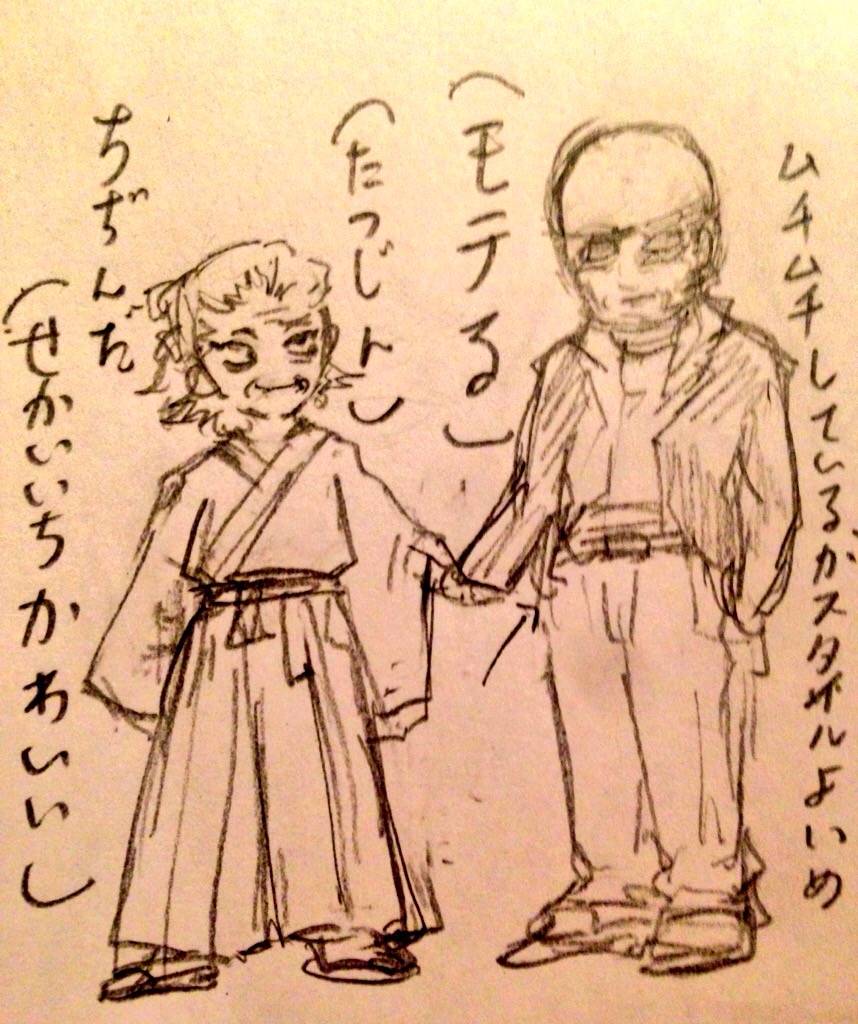 ムチムチしているがスタイルよいめ
(モテる)
(たつじん)
ちぢんだ
(せかいいちかわいい)